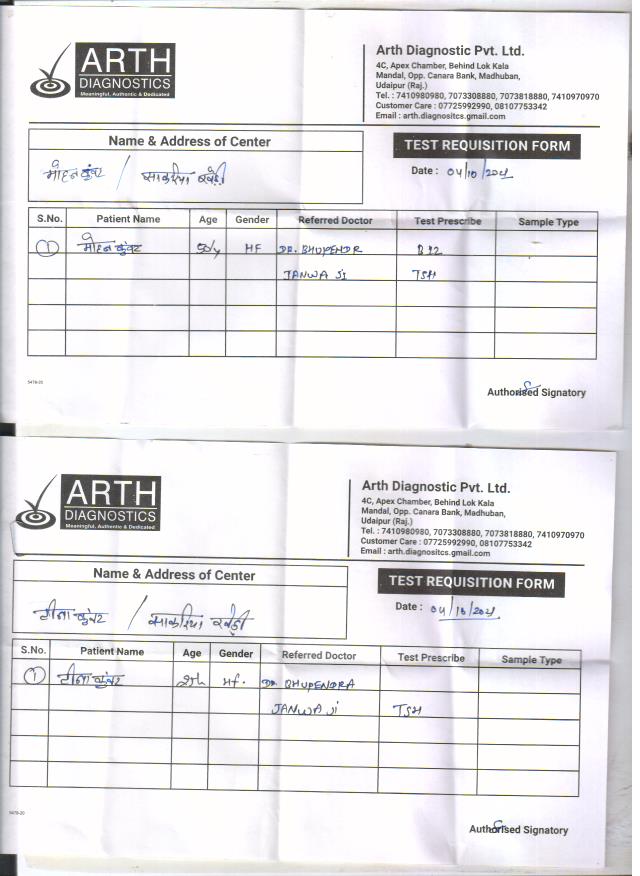 ARTH
DIAGNOSTICS
Meaningful, Authentic & Dedicated
Arth Diagnostic Pvt. Ltd.
4C, Apex Chamber, Behind Lok Kala
Mandal, Opp. Canara Bank, Madhuban,
Udaipur (Raj.)
Tel. : 7410980980, 7073308880, 7073818880, 7410970970
Customer Care : 07725992990, 08107753342
Email : arth.diagnositcs.gmail.com
Name & Address of Center
TEST REQUISITION FORM
मोहन कुंवर / साकरिया खेड़ी
Date : 04/10/2021
S.No. Patient Name Age Gender Referred Doctor Test Prescribe Sample Type
1 मोहन कुंवर 50/y HF DR. BHUPENDR B12
JANWA JI TSH
5478-20
Authorised Signatory
ARTH
DIAGNOSTICS
Meaningful, Authentic & Dedicated
Arth Diagnostic Pvt. Ltd.
4C, Apex Chamber, Behind Lok Kala
Mandal, Opp. Canara Bank, Madhuban,
Udaipur (Raj.)
Tel. : 7410980980, 7073308880, 7073818880, 7410970970
Customer Care : 07725992990, 08107753342
Email : arth.diagnositcs.gmail.com
Name & Address of Center
TEST REQUISITION FORM
टीना कुंवर / साकरिया खेड़ी
Date : 04/10/2021
S.No. Patient Name Age Gender Referred Doctor Test Prescribe Sample Type
1 टीना कुंवर Hf. DR. BHUPENDRA
JANWA Ji TSH
5478-20
Authorised Signatory